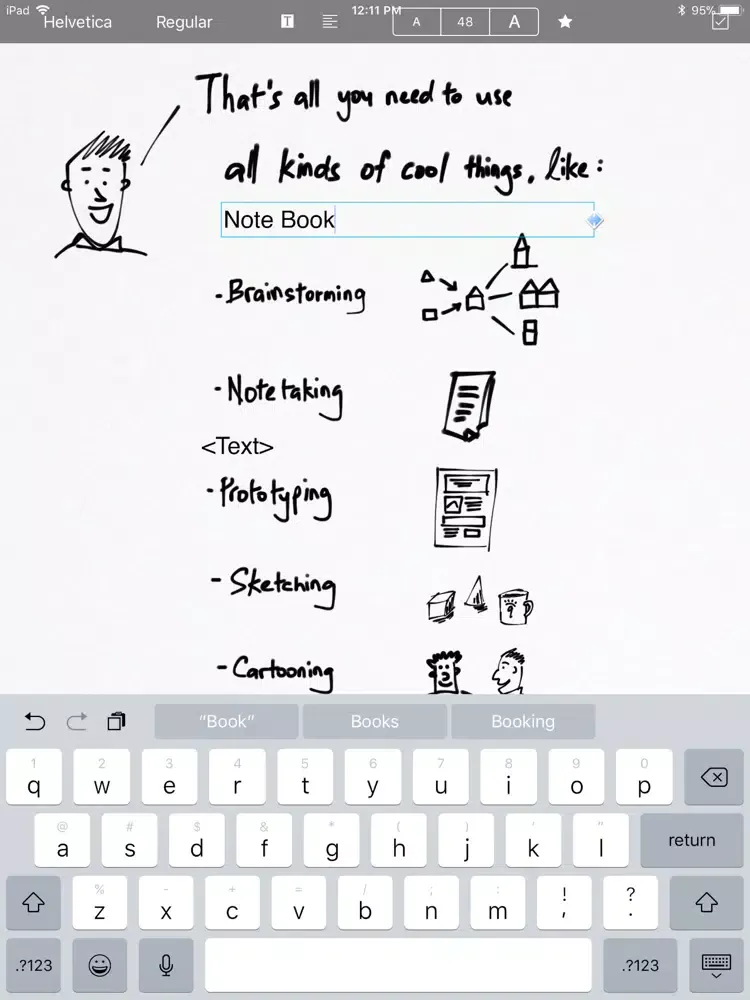 iPad 12:11 PM 95%
Helvetica Regular T A 48 A
That's all you need to use
all kinds of cool things, like:
Note Book
- Brainstorming
- Note taking
<Text>
- Prototyping
- Sketching
- Cartooning
“Book” Books Booking
1 2 3 4 5 6 7 8 9 0
q w e r t y u i o p
@ # $ & * ( ) ' "
a s d f g h j k l return
% - + = / ; : ! ?
z x c v b n m , .
.?123 .?123